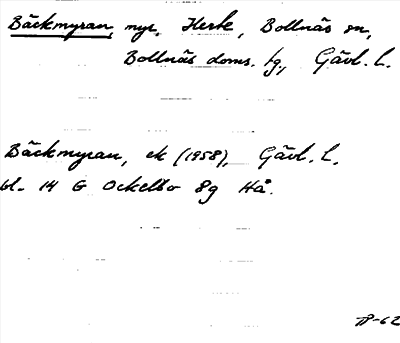 Bäckmyran, myr, Herte, Bollnäs sn,
Bollnäs doms. tg, Gävl. L.
Bäckmyran, ek (1958), Gävl. L.
bl. 14 G Ockelbo 8g Hå.
-62